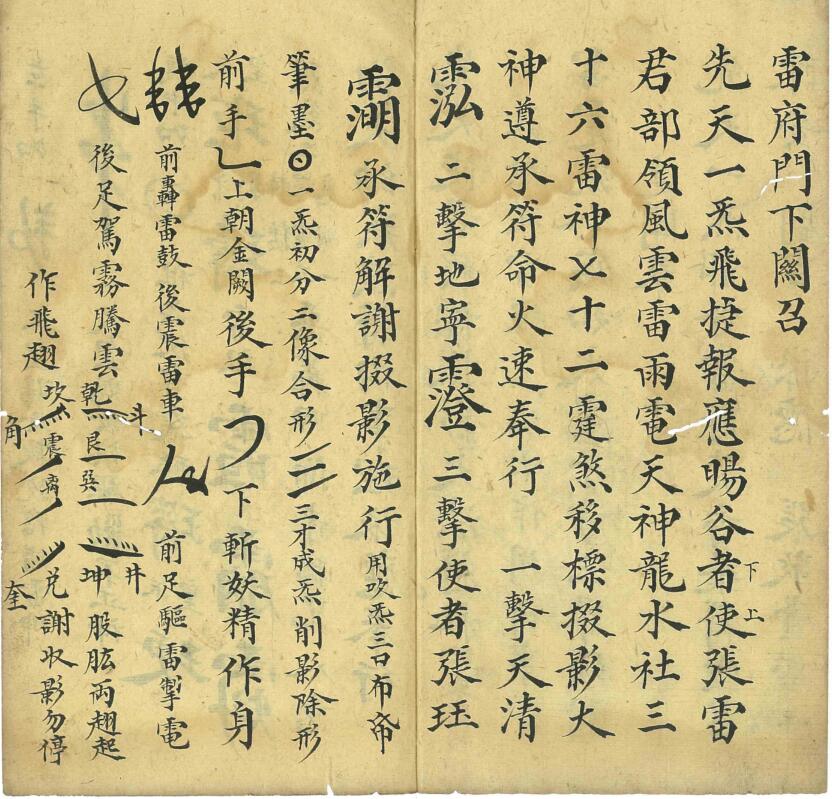 雷府門下關召
先天一炁飛捷報應暘谷者使張雷
君部領風雲雷雨電天神龍水社三
十六雷神乄十二霆煞移標掇影大
神遵承符命火速奉行　一擊天清
霐二擊地寧霔三擊使者張珏
承符解謝掇影施行用吹炁三口布帝
筆墨一炁初分二像合形三才成炁削影除形
前手上朝金闕後手下斬妖精作身
前轟雷鼓後震雷車　前足驅雷掣電
後足駕霧騰雲　乾艮巽坤　斗井　股肱両翅起
作飛翅　坎震離兌　角奎　謝收影勿停